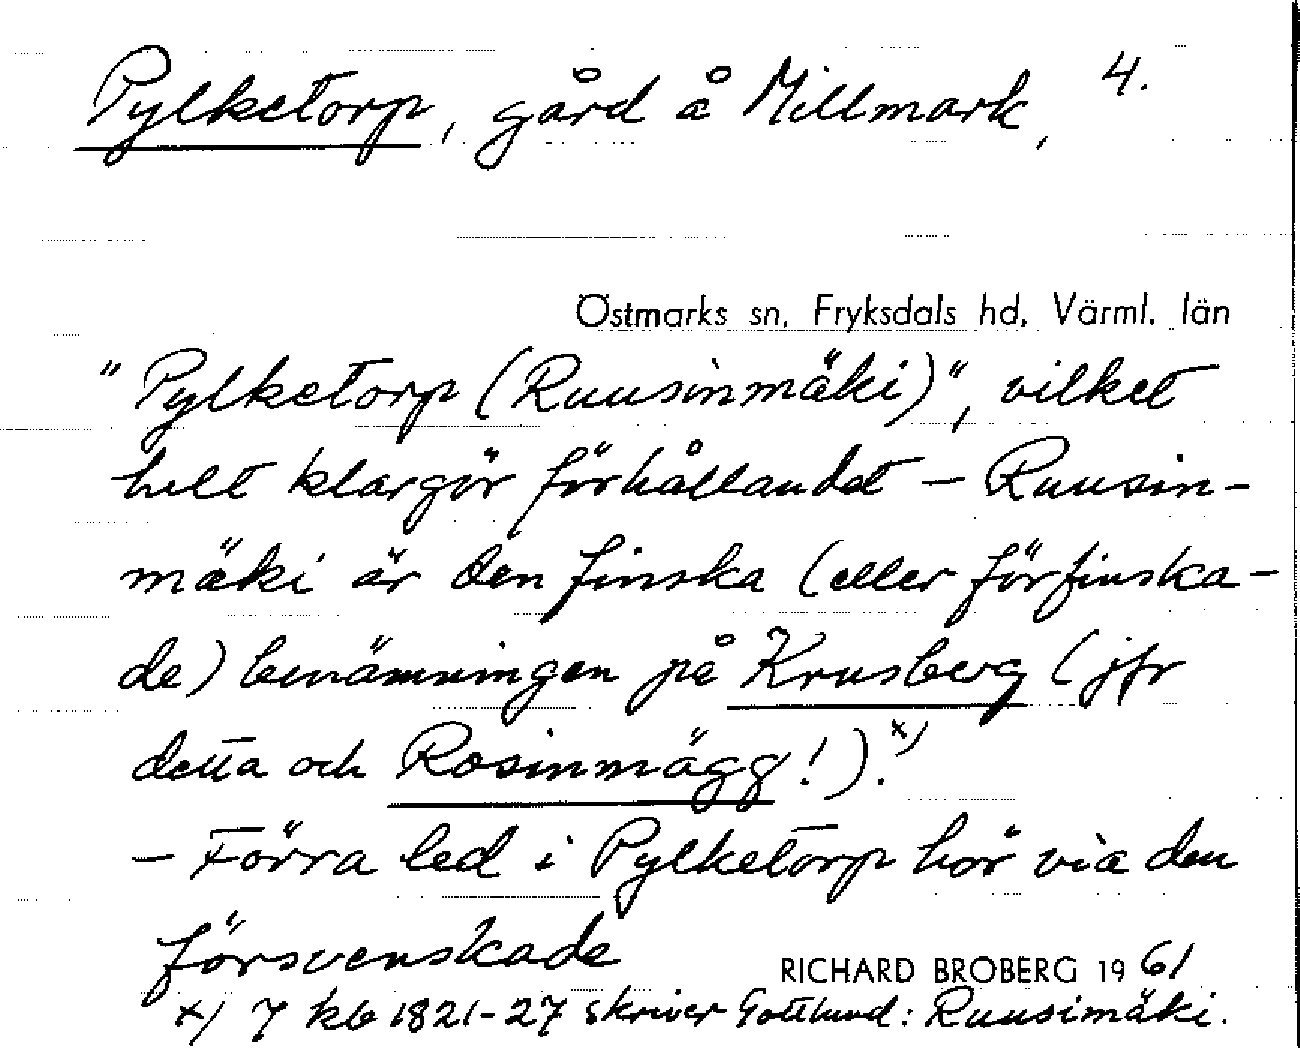 Pylketorp, gård å Millmark, 4.
Östmarks sn, Fryksdals hd, Värml. län
"Pylketorp (Ruusinmäki)", vilket
helt klargör förhållandet - Ruusin-
mäki är den finska (eller förfinska-
de) benämningen på Krusberg (jfr
detta och Rosinmägg!).x)
- Förra led i Pylketorp hör via den
försvenskade
RICHARD BROBERG 1961
x) I kb 1821-27 skriver Gottlund: Ruusimäki.